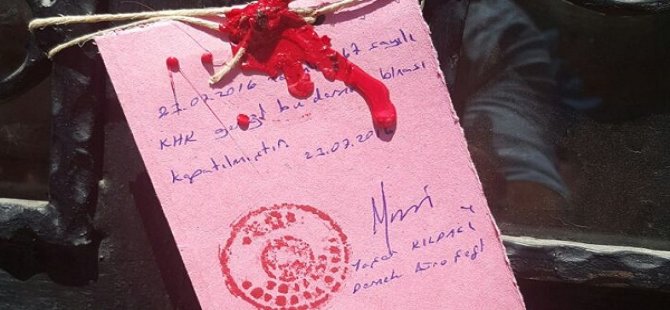 23.07.2016 67 sayılı
KHK gereği bu dernek binası
kapatılmıştır. 23.07.2016
KILDACI
Dernek Büro Şefi